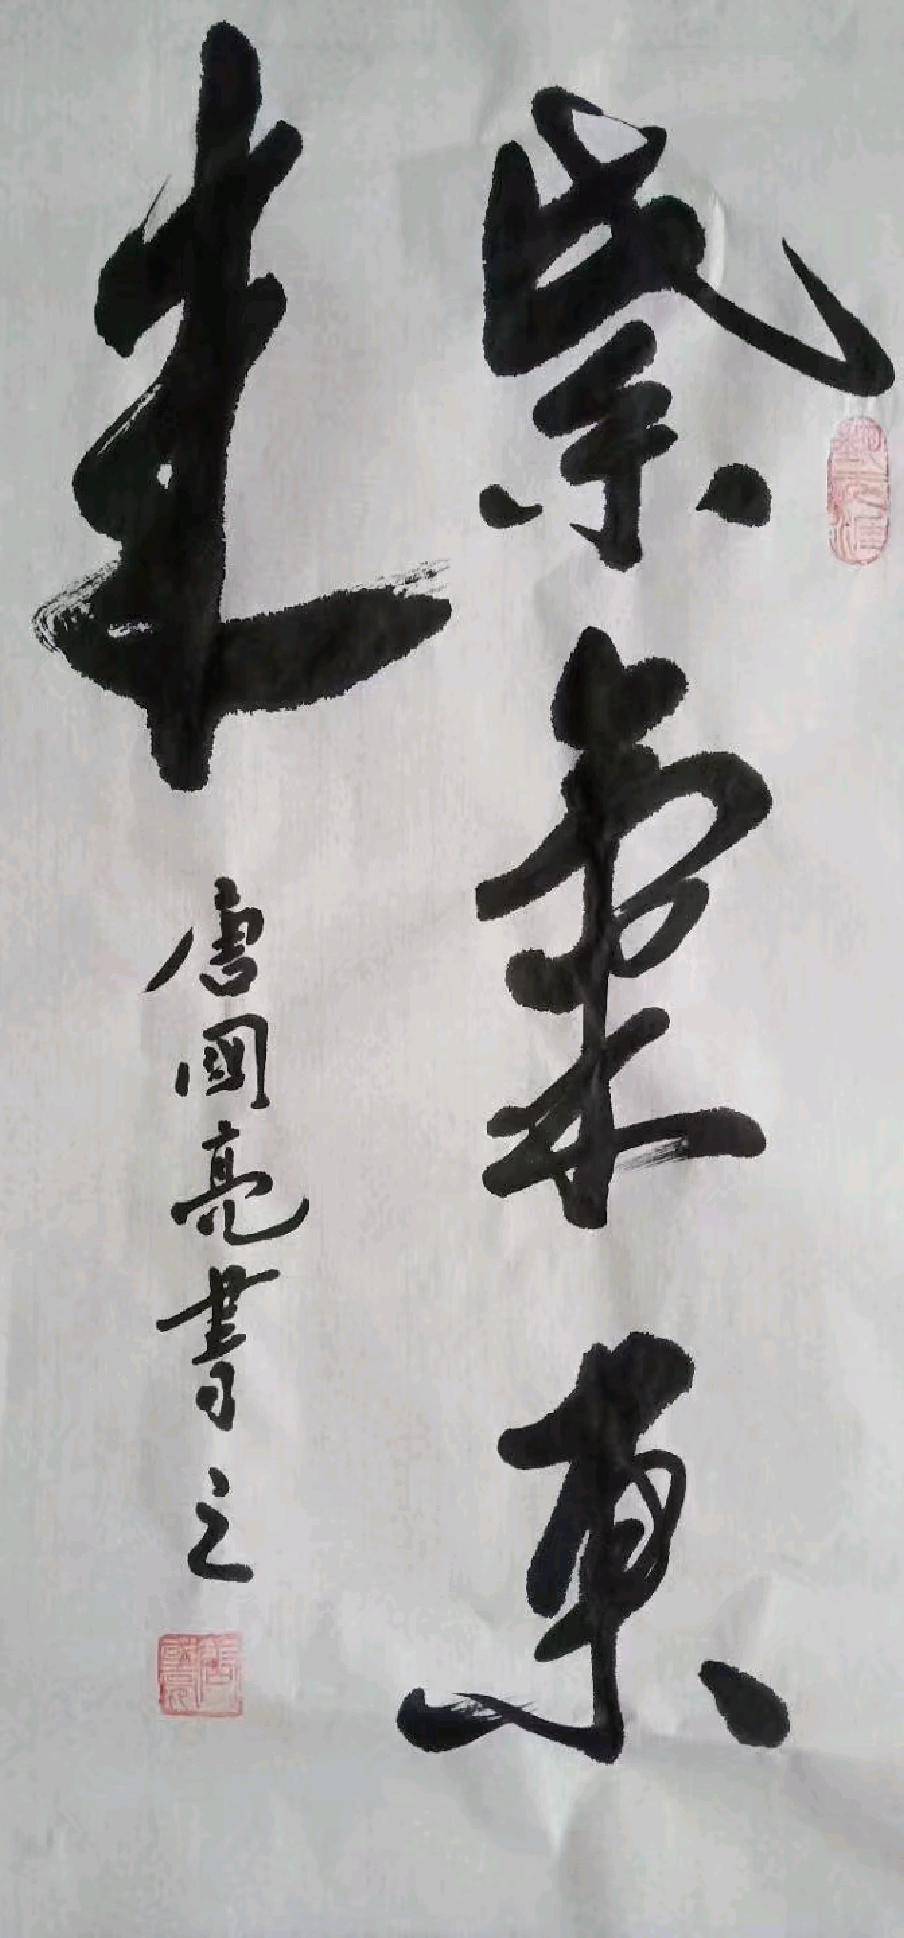 紫氣東
来
唐國亮書之